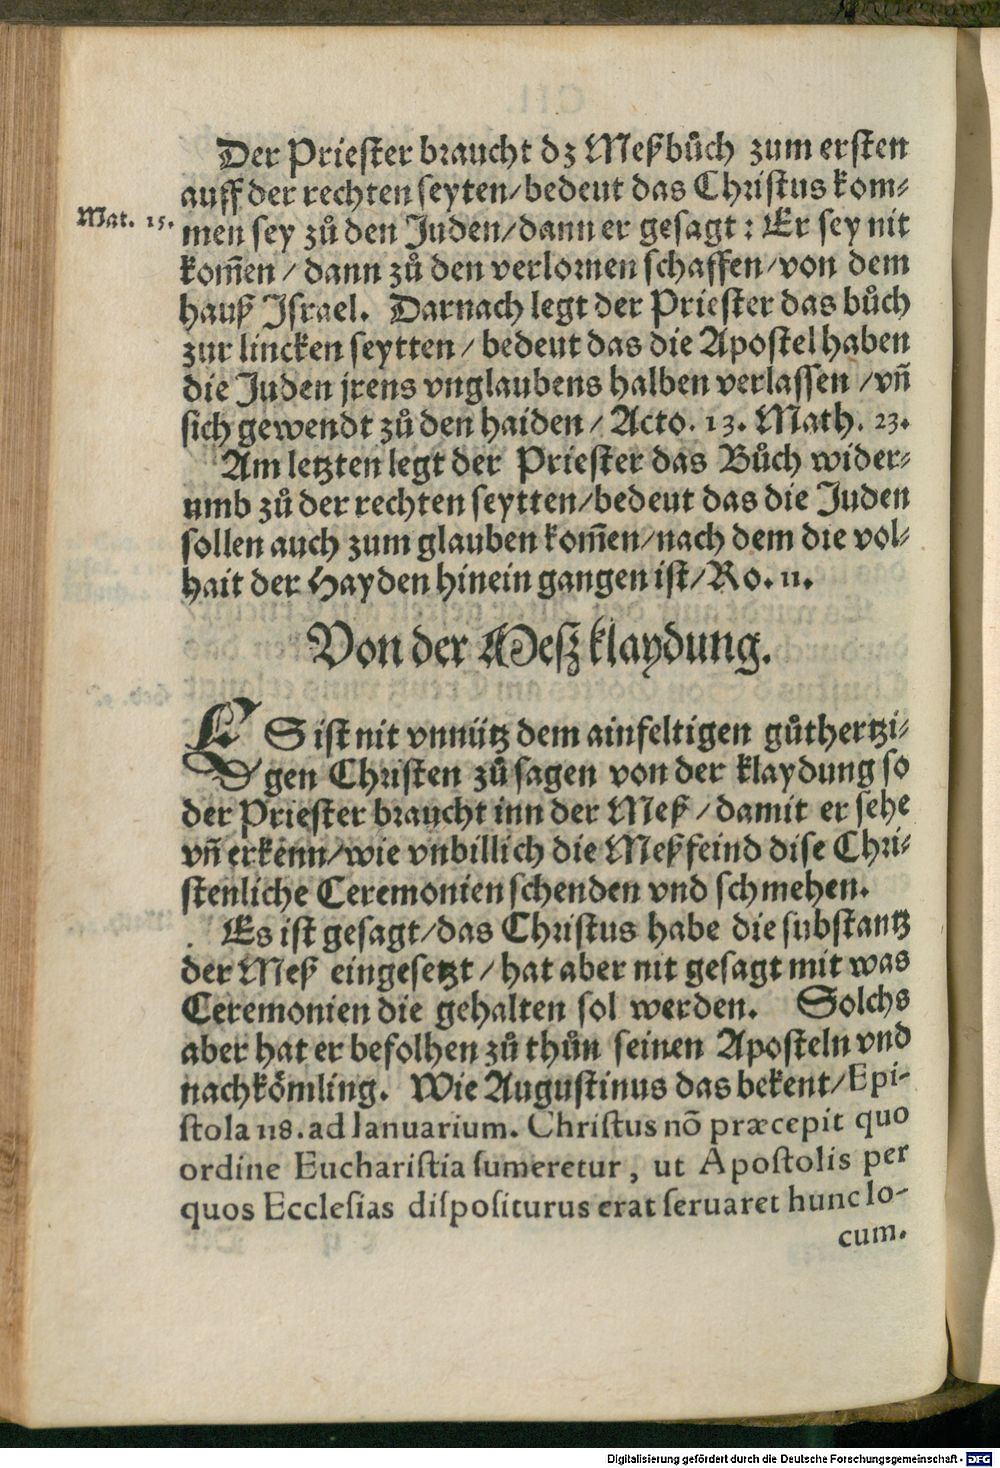 Der Priester braucht dz Meßbůch zum ersten
auff der rechten seyten/bedeut das Christus kom-
Mat. 15.
men sey zů den Juden/dann er gesagt: Er sey nit
kom̄en / dann zů den verlornen schaffen/von dem
hauß Israel. Darnach legt der Priester das bůch
zur lincken seytten / bedeut das die Apostel haben
die Juden jrens vnglaubens halben verlassen /vn̄
sich gewendt zů den haiden / Acto. 13. Math. 23.
Am letzten legt der Priester das Bůch wider-
umb zů der rechten seytten/bedeut das die Juden
sollen auch zum glauben kom̄en/nach dem die vol-
hait der Hayden hinein gangen ist/Ro. 11.
Von der Meßklaydung.
ES ist nit vnnütz dem ainfeltigen gůthertzi-
gen Christen zů sagen von der klaydung so
der Priester braucht inn der Meß / damit er sehe
vn̄ erkenn/wie vnbillich die Meßfeind dise Chri-
stenliche Ceremonien schenden vnd schmehen.
Es ist gesagt/das Christus habe die substantz
der Meß eingesetzt / hat aber nit gesagt mit was
Ceremonien die gehalten sol werden. Solchs
aber hat er befolhen zů thůn seinen Aposteln vnd
nachkömling. Wie Augustinus das bekent/Epi-
ſtola 118. ad Ianuarium. Chriſtus nō præcepit quo
ordine Euchariſtia ſumeretur, ut Apoſtolis per
quos Eccleſias diſpoſiturus erat ſeruaret hunc lo-
cum.
Digitalisierung gefördert durch die Deutsche Forschungsgemeinschaft - DFG